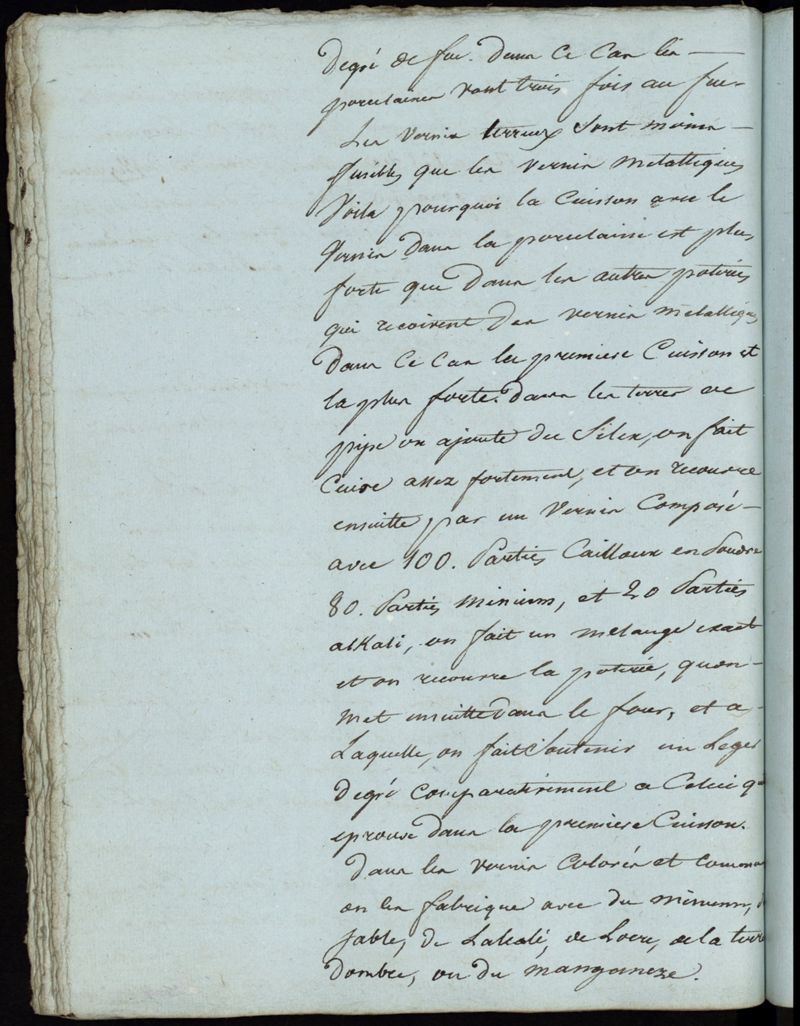 Degré de feu. Dans ce cas les
porcelaines vont trois fois au feu
Les vernis terreux sont moins
fusibles que les vernis metalliques
Voila pourquoi la Cuisson avec le
vernis dans la porcelaine est plus
forte que dans les autres poteries
qui recoivent des vernis metalliques
dans ce cas la premiere Cuisson est
la plus forte. dans les terres de
pipe on ajoute du Silex, on fait
Cuire assez fortement, et on recouvre
ensuitte par un vernis Composé
avec 100. Parties Cailloux en Poudre
80. Parties minium, et 20 Parties
alKali, on fait un melange exact
et on recouvre la poterie, quon
met ensuitte dans le four, et a
Laquelle, on fait Soutenir un Leger
degré comparativement a Celui q
eprouve dans la premiere Cuisson.
dans les vernis Colorés et Communs
on les fabrique avec du minium, d
sable, de Lalcali, de Locre, de la terre
dombre, ou du manganeze.